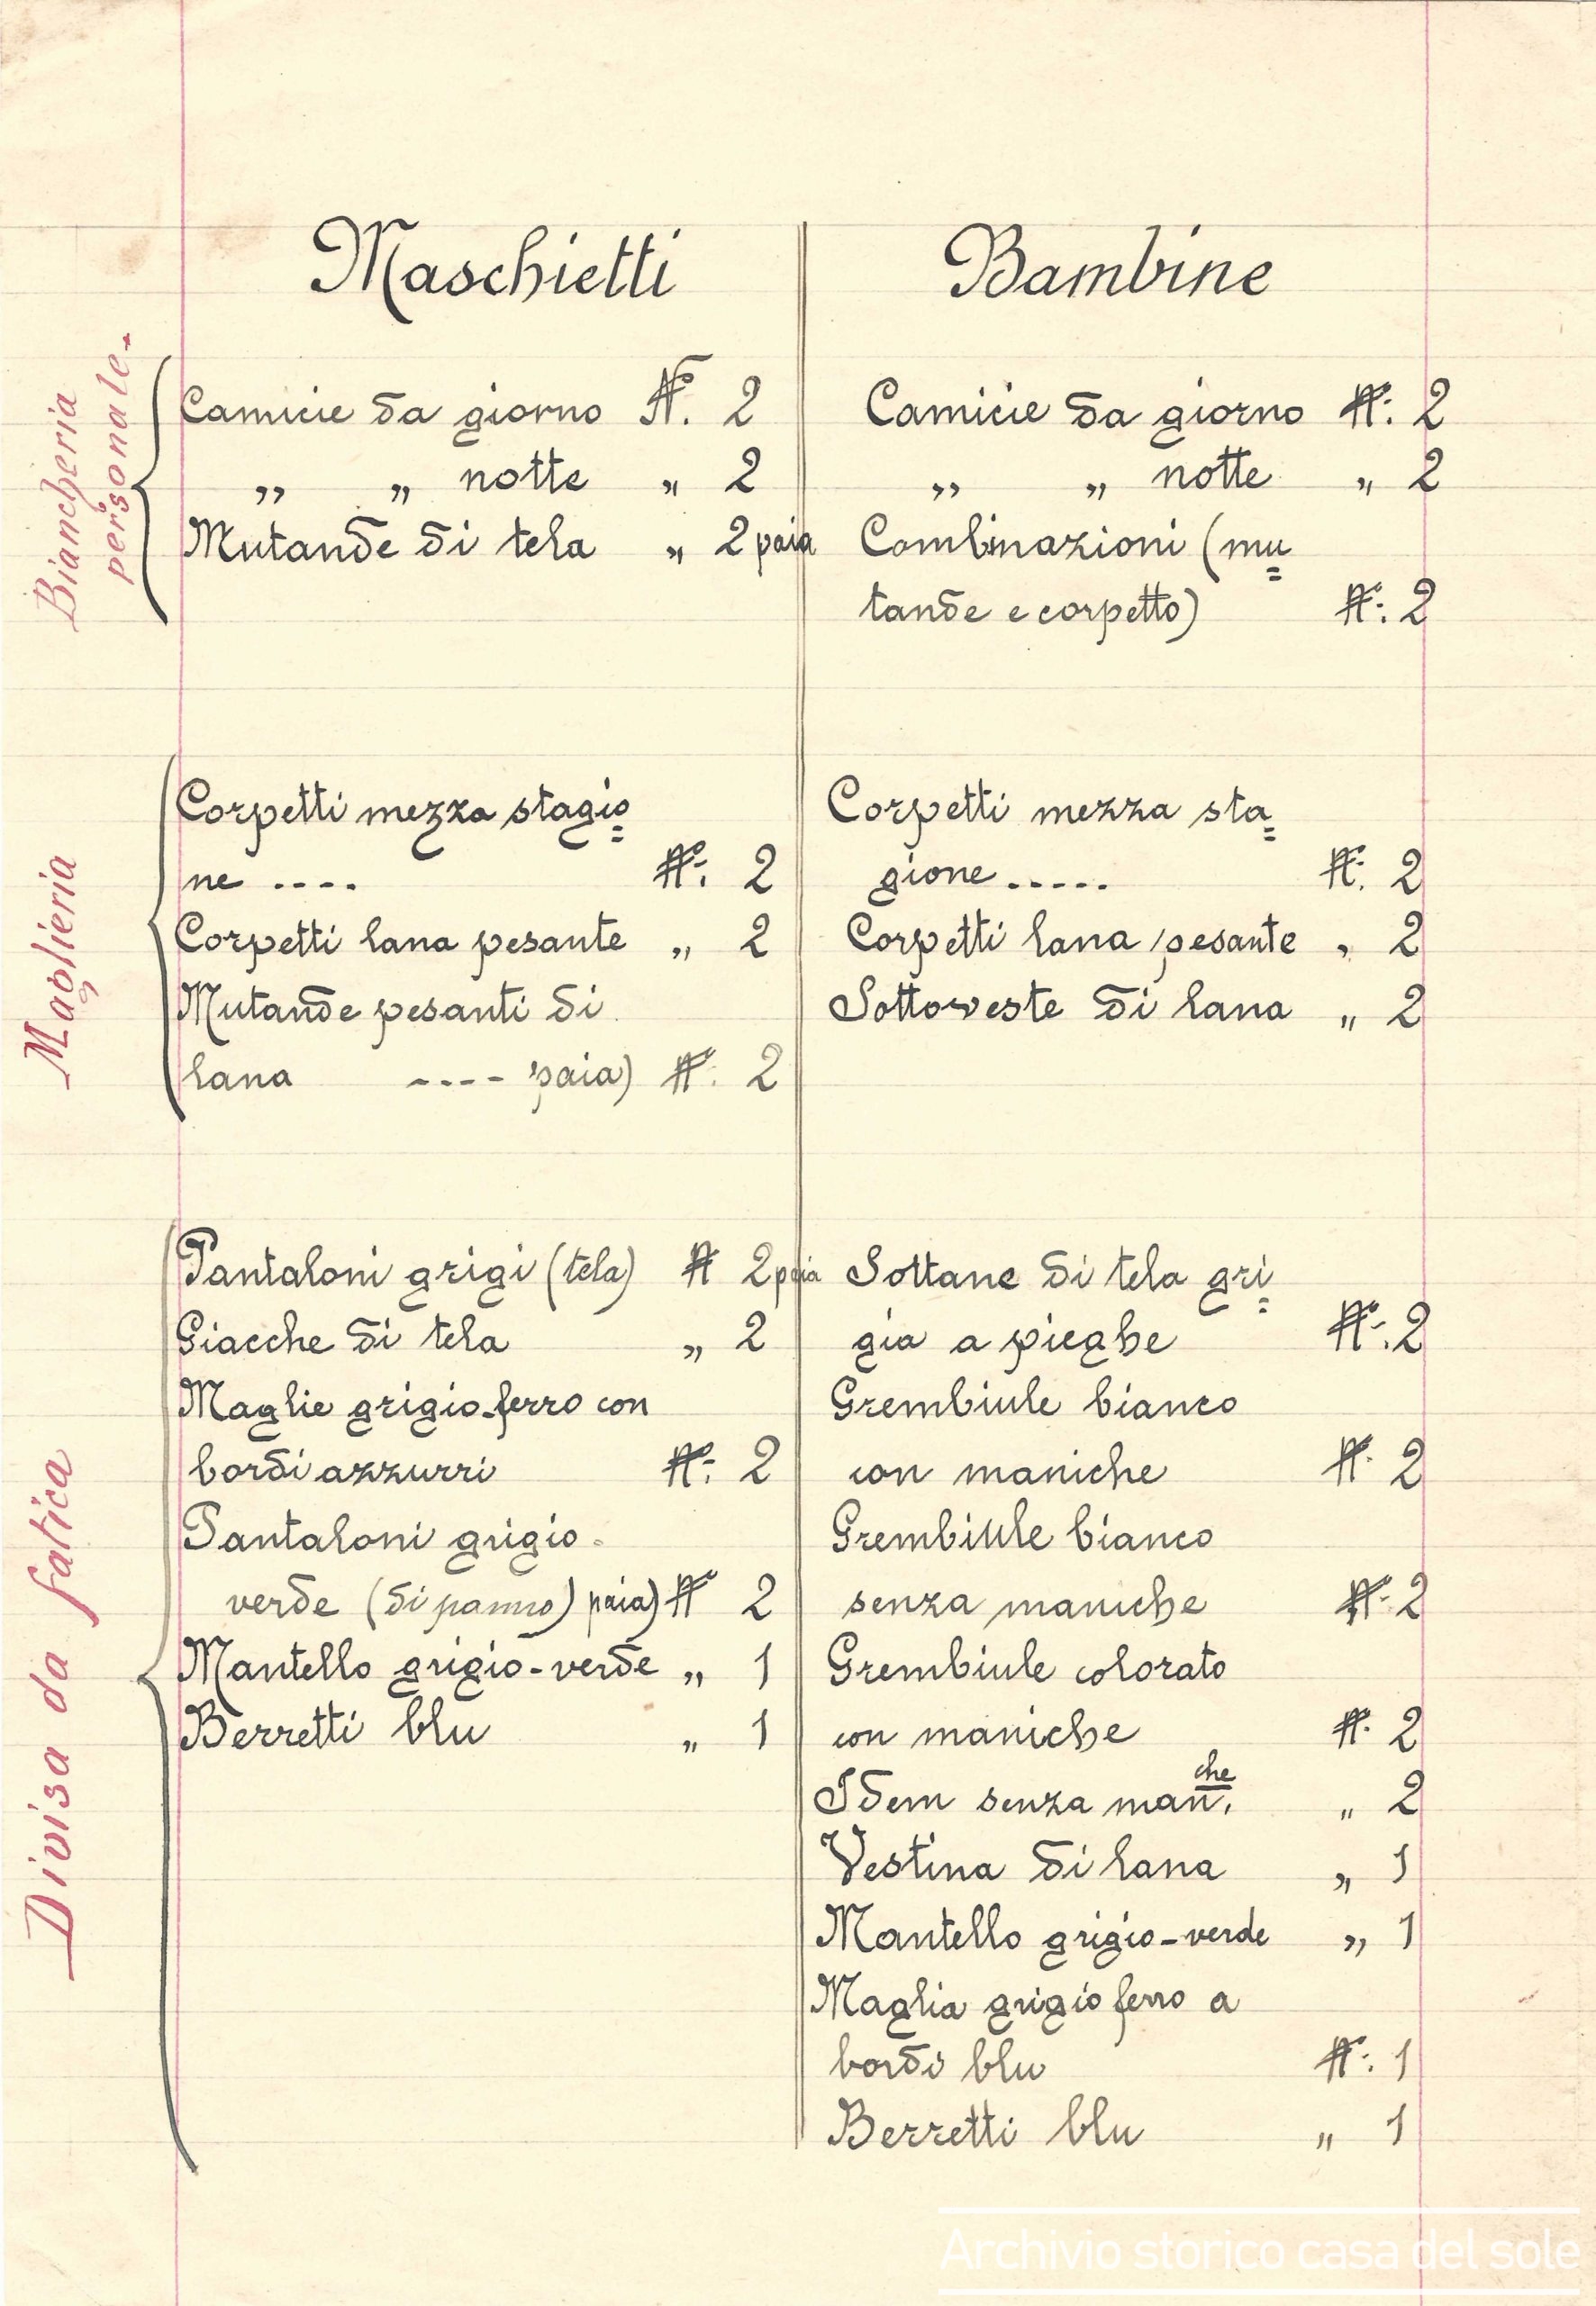 Maschietti
Bambine
Biancheria
personale-
Camicie da giorno N. 2
„ „ notte „ 2
Mutande di tela „ 2 paia
Camicie da giorno N. 2
„ „ notte „ 2
Combinazioni (mu=
tande e corpetto) N. 2
Maglieria
Corpetti mezza stagio=
ne .... N. 2
Corpetti lana pesante „ 2
Mutande pesanti di
lana ---- paia) N. 2
Corpetti mezza sta=
gione ..... N. 2
Corpetti lana pesante „ 2
Sottoveste di lana „ 2
Divisa da fatica
Pantaloni grigi (tela) N 2 paia
Giacche di tela „ 2
Maglie grigio-ferro con
bordi azzurri N. 2
Pantaloni grigio-
verde (di panno) paia) N 2
Mantello grigio-verde „ 1
Berretti blu „ 1
Sottane di tela gri=
gia a pieghe N. 2
Grembiule bianco
con maniche N. 2
Grembiule bianco
senza maniche N. 2
Grembiule colorato
con maniche N. 2
Idem senza man.che „ 2
Vestina di lana „ 1
Mantello grigio-verde „ 1
Maglia grigio ferro a
bordi blu N. 1
Berretti blu „ 1
Archivio storico casa del sole